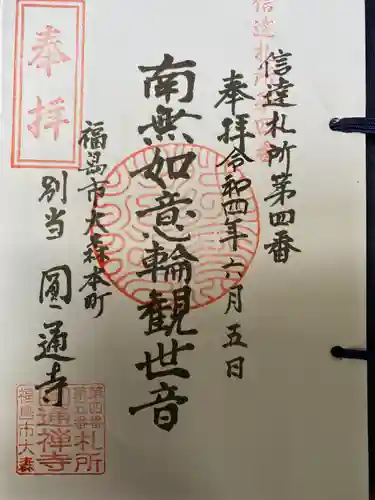 信達札所第四番
信達札所第四番
奉拝 令和四年六月五日
南無如意輪観世音
福島市大森本町
別当 圓通寺
奉拝
第四番
第五番
札所
通禅寺
福島市大森